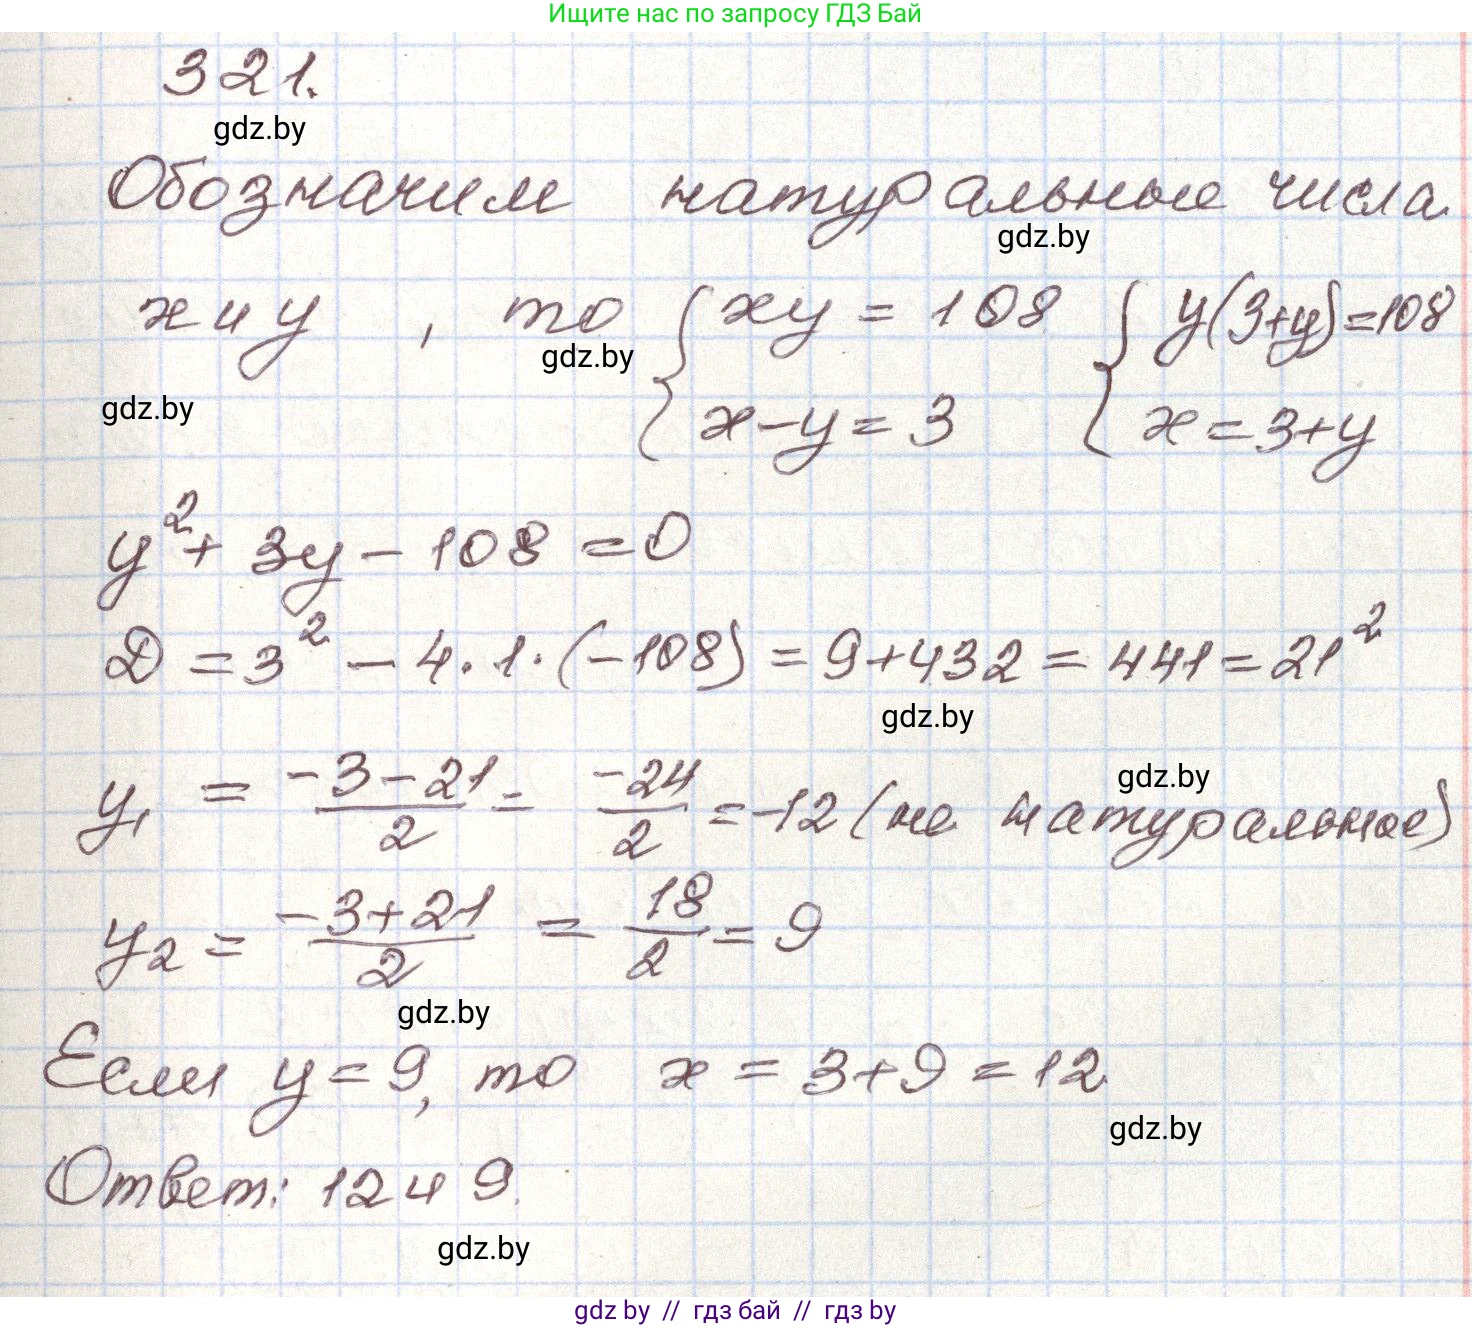 Ищите нас по запросу ГДЗ Бай
321.
gdz.by
Обозначим натуральные числа
gdz.by
x и y, то { xy = 108 { y(3+y)=108
gdz.by
gdz.by
x - y = 3 x = 3+y
y² + 3y - 108 = 0
D = 3² - 4·1·(-108) = 9+432 = 441 = 21²
gdz.by
gdz.by
y₁ = (-3-21)/2 = -24/2 = -12 (не натуральное)
y₂ = (-3+21)/2 = 18/2 = 9
gdz.by
Если y = 9, то x = 3+9 = 12
gdz.by
Ответ: 12 и 9.
gdz.by
gdz by // гдз бай // гдз by